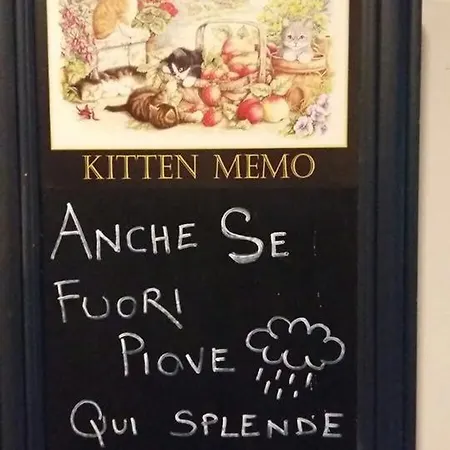 KITTEN MEMO
ANCHE SE
FUORI
PIOVE
QUI SPLENDE